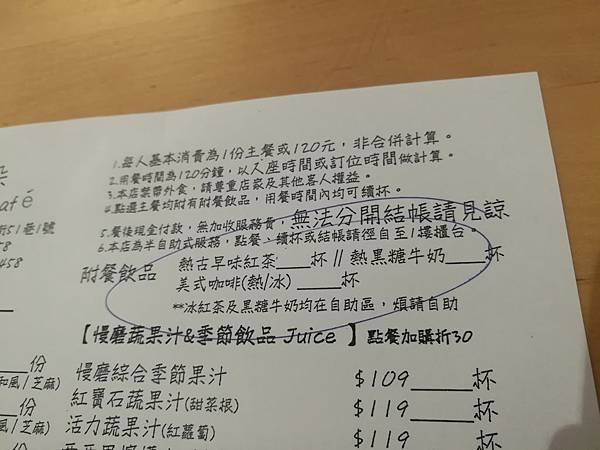 1.每人基本消費為1份主餐或120元，非合併計算。
2.用餐時間為120分鐘，以入座時間或訂位時間做計算。
3.本店禁帶外食，請尊重店家及其他客人權益。
4.點選主餐均附有附餐飲品，用餐時間內均可續杯。
5.餐後現金付款，無加收服務費，無法分開結帳請見諒
6.本店為半自助式服務，點餐、續杯或結帳請徑自至1樓櫃台。
afé
街51巷1號
58
458
附餐飲品 熱古早味紅茶____杯 // 熱黑糖牛奶____杯
美式咖啡(熱/冰) _____杯
**冰紅茶及黑糖牛奶均在自助區，煩請自助
【慢磨蔬果汁&季節飲品 Juice 】點餐加購折30
____份 慢磨綜合季節果汁 $109______杯
和風/芝麻) 紅寶石蔬果汁(甜菜根) $119______杯
____份 活力蔬果汁(紅蘿蔔) $119______杯
風/芝麻)
份
$119
杯